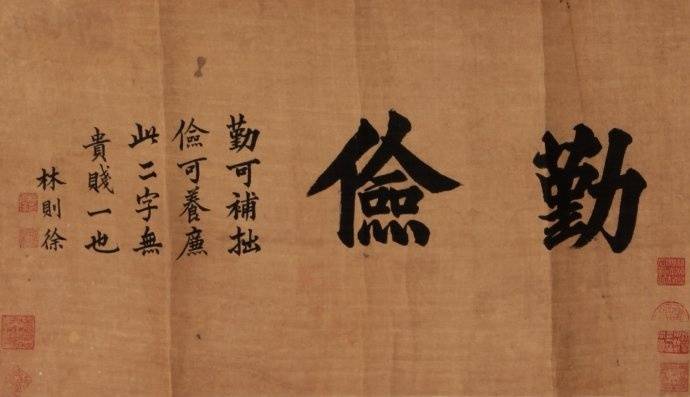 勤
儉
勤可補拙
儉可養廉
此二字無
貴賤一也
林則徐